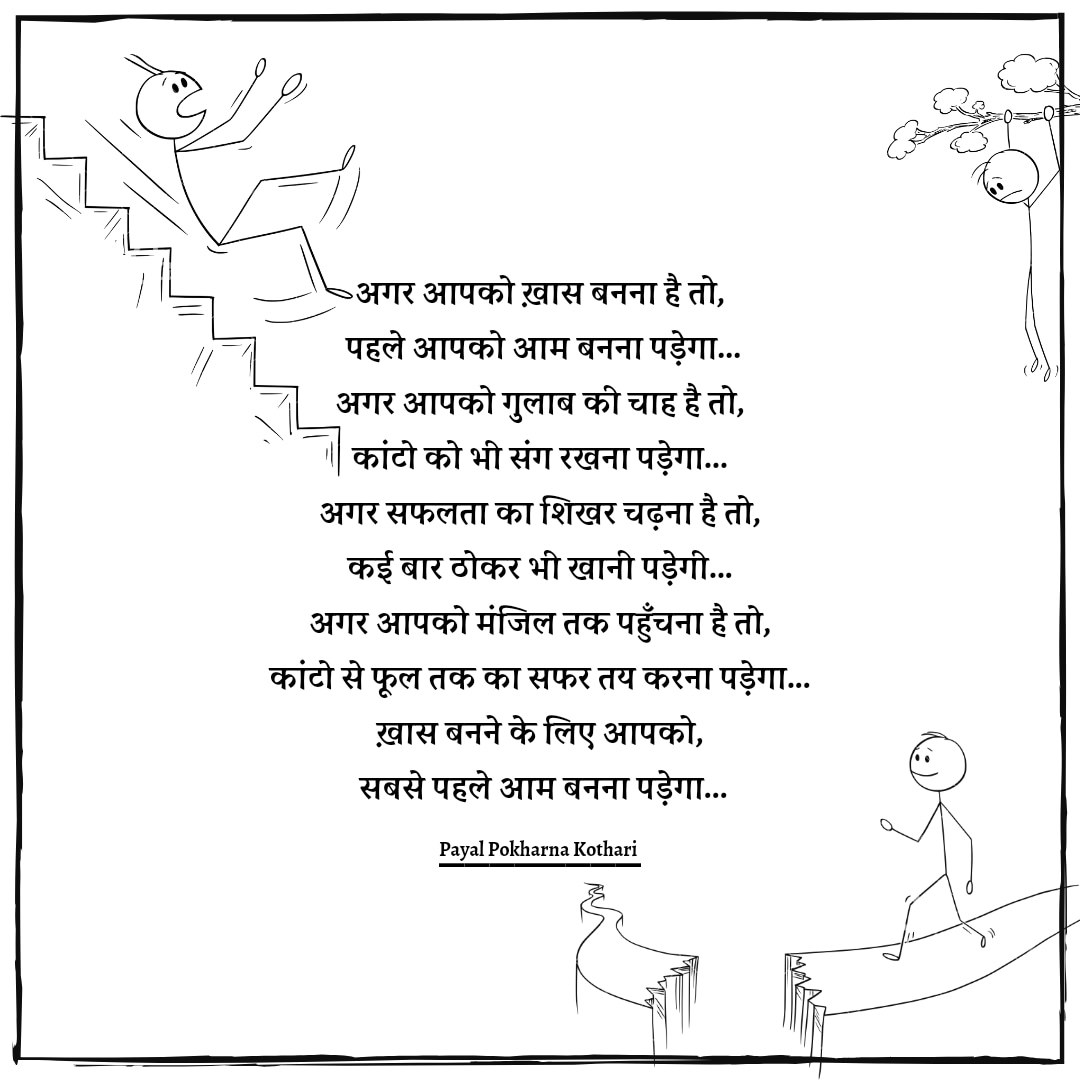 अगर आपको ख़ास बनना है तो,
पहले आपको आम बनना पड़ेगा...
अगर आपको गुलाब की चाह है तो,
कांटो को भी संग रखना पड़ेगा...
अगर सफलता का शिखर चढ़ना है तो,
कई बार ठोकर भी खानी पड़ेगी...
अगर आपको मंजिल तक पहुँचना है तो,
कांटो से फूल तक का सफर तय करना पड़ेगा...
ख़ास बनने के लिए आपको,
सबसे पहले आम बनना पड़ेगा...
Payal Pokharna Kothari